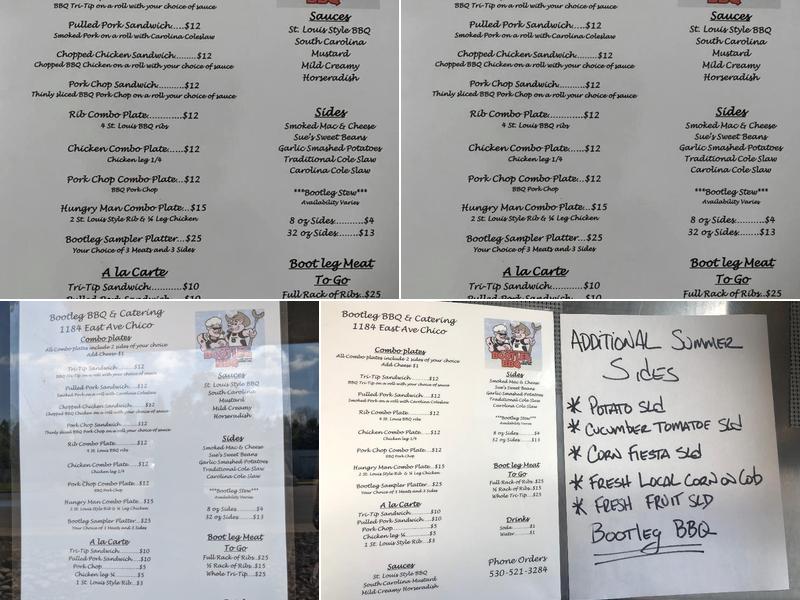 BBQ Tri-Tip on a roll with your choice of sauce
Pulled Pork Sandwich......$12
Smoked Pork on a roll with Carolina Coleslaw
Chopped Chicken Sandwich.........$12
Chopped BBQ Chicken on a roll with your choice of sauce
Pork Chop Sandwich............$12
Thinly sliced BBQ Pork Chop on a roll your choice of sauce
Rib Combo Plate............$12
4 St. Louis BBQ ribs
Chicken Combo Plate......$12
Chicken leg 1/4
Pork Chop Combo Plate...$12
BBQ Pork Chop
Hungry Man Combo Plate...$15
2 St. Louis Style Rib & ¼ Leg Chicken
Bootleg Sampler Platter...$25
Your Choice of 3 Meats and 3 Sides
A la Carte
Tri-Tip Sandwich.........$10
Pulled Pork Sandwich.....$10
Sauces
St. Louis Style BBQ
South Carolina
Mustard
Mild Creamy
Horseradish
Sides
Smoked Mac & Cheese
Sue's Sweet Beans
Garlic Smashed Potatoes
Traditional Cole Slaw
Carolina Cole Slaw
***Bootleg Stew***
Availability Varies
8 oz Sides..........$4
32 oz Sides.......$13
Boot leg Meat
To Go
Full Rack of Ribs..$25
BBQ Tri-Tip on a roll with your choice of sauce
Pulled Pork Sandwich......$12
Smoked Pork on a roll with Carolina Coleslaw
Chopped Chicken Sandwich.........$12
Chopped BBQ Chicken on a roll with your choice of sauce
Pork Chop Sandwich............$12
Thinly sliced BBQ Pork Chop on a roll your choice of sauce
Rib Combo Plate............$12
4 St. Louis BBQ ribs
Chicken Combo Plate......$12
Chicken leg 1/4
Pork Chop Combo Plate...$12
BBQ Pork Chop
Hungry Man Combo Plate...$15
2 St. Louis Style Rib & ¼ Leg Chicken
Bootleg Sampler Platter...$25
Your Choice of 3 Meats and 3 Sides
A la Carte
Tri-Tip Sandwich.........$10
Pulled Pork Sandwich.....$10
Sauces
St. Louis Style BBQ
South Carolina
Mustard
Mild Creamy
Horseradish
Sides
Smoked Mac & Cheese
Sue's Sweet Beans
Garlic Smashed Potatoes
Traditional Cole Slaw
Carolina Cole Slaw
***Bootleg Stew***
Availability Varies
8 oz Sides..........$4
32 oz Sides.......$13
Boot leg Meat
To Go
Full Rack of Ribs..$25
Bootleg BBQ & Catering
1184 East Ave Chico
Combo plates
All Combo plates include 2 sides of your choice
Add Cheese $1
Tri-Tip Sandwich......$12
BBQ Tri-Tip on a roll with your choice of sauce
Pulled Pork Sandwich......$12
Smoked Pork on a roll with Carolina Coleslaw
Chopped Chicken Sandwich.........$12
Chopped BBQ Chicken on a roll with your choice of sauce
Pork Chop Sandwich............$12
Thinly sliced BBQ Pork Chop on a roll your choice of sauce
Rib Combo Plate............$12
4 St. Louis BBQ ribs
Chicken Combo Plate......$12
Chicken leg 1/4
Pork Chop Combo Plate...$12
BBQ Pork Chop
Hungry Man Combo Plate...$15
2 St. Louis Style Rib & ¼ Leg Chicken
Bootleg Sampler Platter...$25
Your Choice of 3 Meats and 3 Sides
A la Carte
Tri-Tip Sandwich.........$10
Pulled Pork Sandwich.....$10
Pork Chop..................$5
Chicken leg ¼............$5
1 St. Louis Style Rib...$3
Sauces
St. Louis Style BBQ
South Carolina
Mustard
Mild Creamy
Horseradish
Sides
Smoked Mac & Cheese
Sue's Sweet Beans
Garlic Smashed Potatoes
Traditional Cole Slaw
Carolina Cole Slaw
***Bootleg Stew***
Availability Varies
8 oz Sides..........$4
32 oz Sides.......$13
Boot leg Meat
To Go
Full Rack of Ribs..$25
½ Rack of Ribs...$15
Whole Tri-Tip.....$25
Bootleg BBQ & Catering
1184 East Ave Chico
Combo plates
All Combo plates include 2 sides of your choice
Add Cheese $1
Tri-Tip Sandwich..........$12
BBQ Tri-Tip on a roll with your choice of sauce
Pulled Pork Sandwich......$12
Smoked Pork on a roll with Carolina Coleslaw
Rib Combo Plate............$12
4 St. Louis BBQ ribs
Chicken Combo Plate......$12
Chicken leg 1/4
Pork Chop Combo Plate...$12
BBQ Pork Chop
Hungry Man Combo Plate...$15
2 St. Louis Style Rib & ¼ Leg Chicken
Bootleg Sampler Platter...$25
Your Choice of 3 Meats and 3 Sides
A la Carte
Tri-Tip Sandwich.........$10
Pulled Pork Sandwich.....$10
Pork Chop..................$5
Chicken leg ¼............$5
1 St. Louis Style Rib...$3
Sauces
St. Louis Style BBQ
South Carolina Mustard
Mild Creamy Horseradish
BOOTLEG
BBQ
Sides
Smoked Mac & Cheese
Sue's Sweet Beans
Garlic Smashed Potatoes
Traditional Cole Slaw
Carolina Cole Slaw
***Bootleg Stew***
Availability Varies
8 oz Sides..........$4
32 oz Sides.......$13
Boot leg Meat
To Go
Full Rack of Ribs..$25
½ Rack of Ribs..$15
Whole Tri-Tip...$25
Drinks
Soda.........$1
Water........$1
Phone Orders
530-521-3284
ADDITIONAL SUMMER
SIDES
* POTATO SLD
* CUCUMBER TOMATOE SLD
* CORN FIESTA SLD
* FRESH LOCAL CORN ON COB
* FRESH FRUIT SLD
Bootleg BBQ